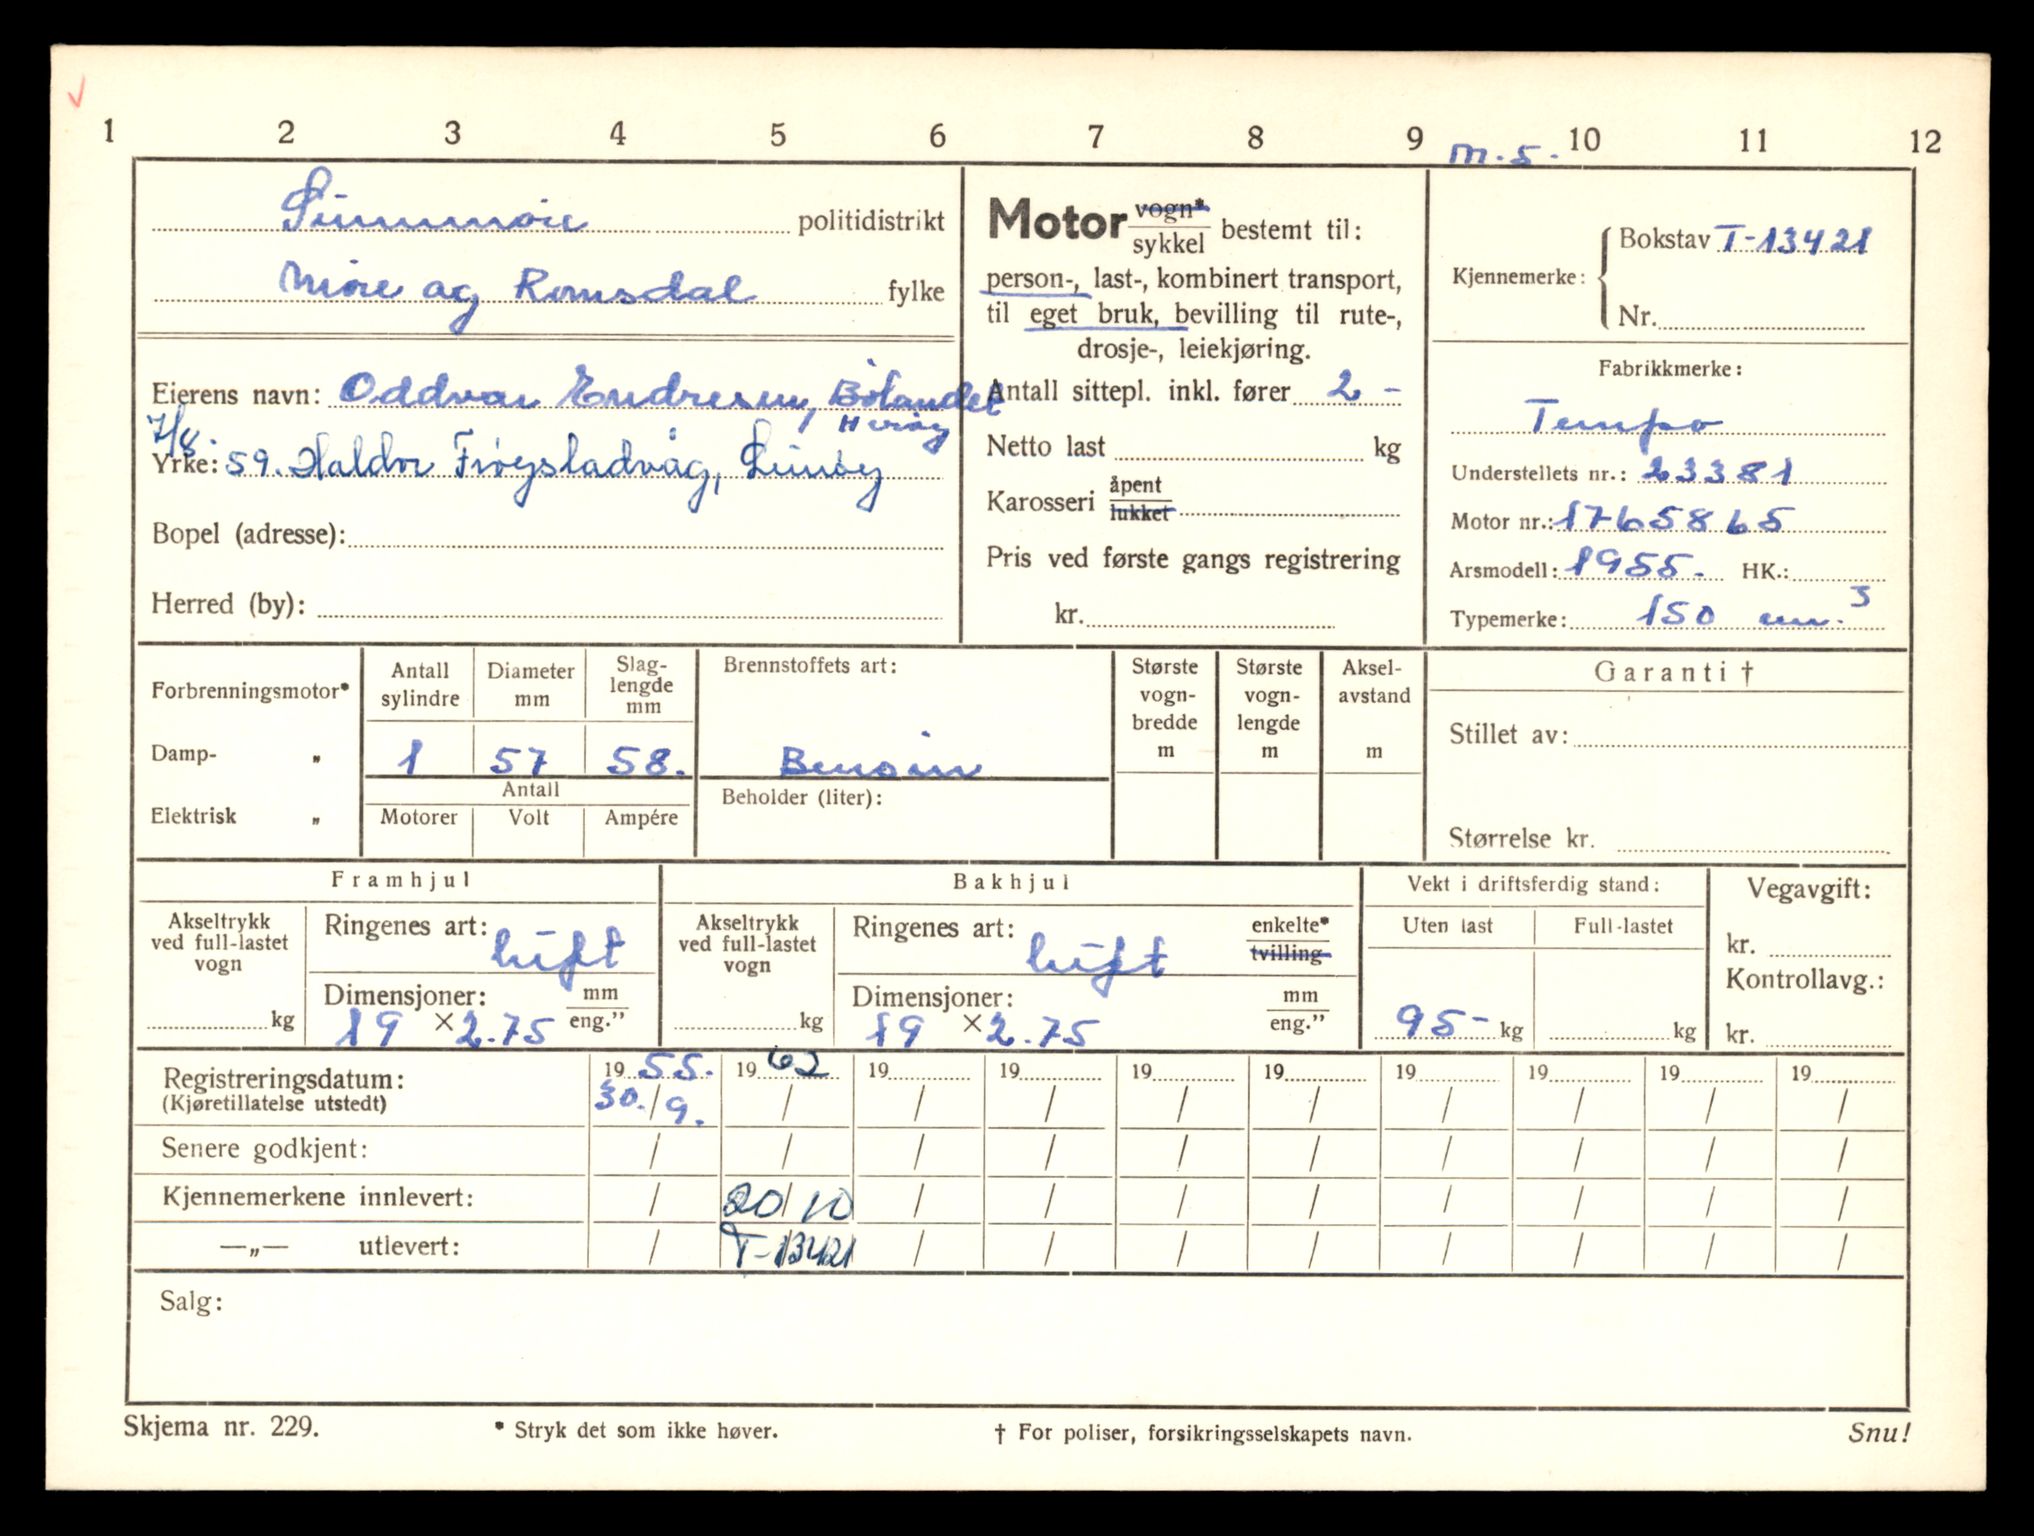 1 2 3 4 5 6 7 8 9 10 11 12
m.s.
Sunnmøre politidistrikt
Møre og Romsdal fylke
Eierens navn: Oddvar Endresen, Bølandet
7/8.
Yrke: 59. Haldor Frøystadvåg,
Bopel (adresse):
Herred (by):
Motor vogn*/sykkel bestemt til:
person-, last-, kombinert transport,
til eget bruk, bevilling til rute-,
drosje-, leiekjøring.
Antall sittepl. inkl. fører 2 -
Netto last kg
Karosseri åpent/lukket
Pris ved første gangs registrering
kr.
Kjennemerke: Bokstav T-13421
Nr.
Fabrikkmerke:
Tempo
Understellets nr.: 23381
Motor nr.: 1765865
Arsmodell: 1955. HK.:
Typemerke: 150 cm.3
Forbrenningsmotor*
Damp- „
Elektrisk „
Antall sylindre
1
Diameter mm
57
Slag-
lengde
mm
58.
Antall
Motorer Volt Ampére
Brennstoffets art:
Bensin
Beholder (liter):
Største
vogn-
bredde
m
Største
vogn-
lengde
m
Aksel-
avstand
m
Garanti †
Stillet av:
Størrelse kr.
Framhjul
Akseltrykk
ved full-lastet
vogn
kg
Ringenes art: luft
Dimensjoner: mm/eng."
19 × 2.75
Bakhjul
Akseltrykk
ved full-lastet
vogn
kg
Ringenes art: luft enkelte*/tvilling
Dimensjoner: mm/eng."
19 × 2.75
Vekt i driftsferdig stand:
Uten last Full-lastet
95- kg kg
Vegavgift:
kr.
Kontrollavg.:
kr.
Registreringsdatum: 19 55. 19 62 19 19 19 19 19 19 19 19
(Kjøretillatelse utstedt) 30./9. / / / / / / / / /
Senere godkjent: / / / / / / / / / /
Kjennemerkene innlevert: / 20/10 / / / / / / / /
—„— utlevert: / T-13421 / / / / / / / /
Salg:
Skjema nr. 229. * Stryk det som ikke høver. † For poliser, forsikringsselskapets navn. Snu!